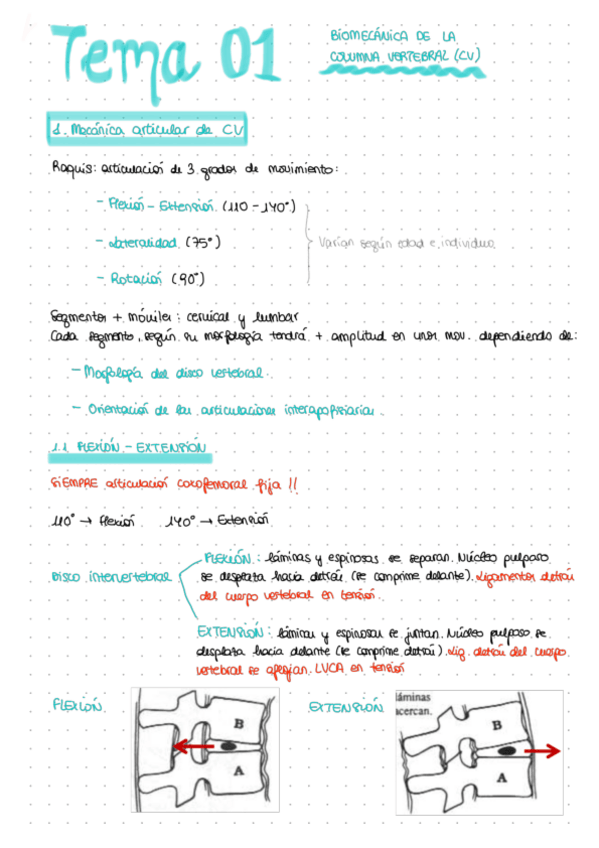 Tema 01
BIOMECÁNICA DE LA
COLUMNA VERTEBRAL (CV)
1. Mecánica articular de CV
Raquis: articulación de 3 grados de movimiento:
- Flexión - Extensión (110 - 140°)
- Lateralidad (75°)
- Rotación (90°)
Varían según edad e individuo
Segmentos + móviles: cervical y lumbar
Cada segmento, según su morfología tendrá + amplitud en unos mov. dependiendo de:
- Morfología del disco vertebral.
- Orientación de las articulaciones interapofisiarias.
1.1 FLEXIÓN - EXTENSIÓN
SIEMPRE articulación coxofemoral fija !!
110° → Flexión 140° → Extensión
Disco intervertebral
FLEXIÓN: láminas y espinosas se separan. Núcleo pulposo
se desplaza hacia detrás. (se comprime delante). Ligamentos detrás
del cuerpo vertebral en tensión.
EXTENSIÓN: láminas y espinosas se juntan. Núcleo pulposo se
desplaza hacia delante (se comprime detrás). Lig. detrás del cuerpo
vertebral se aflojan. LVCA en tensión
FLEXIÓN
B
A
EXTENSIÓN
láminas
acercan.
B
A